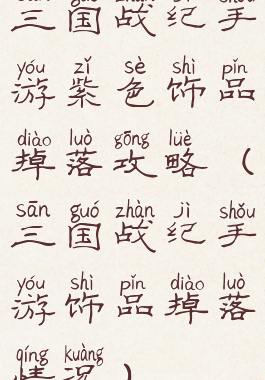 sān guó zhàn jì shǒu
三国战纪手
yóu zǐ sè shì pǐn
游紫色饰品
diào luò gōng lüè
掉落攻略（
sān guó zhàn jì shǒu
三国战纪手
yóu shì pǐn diào luò
游饰品掉落
qíng kuàng
情况）